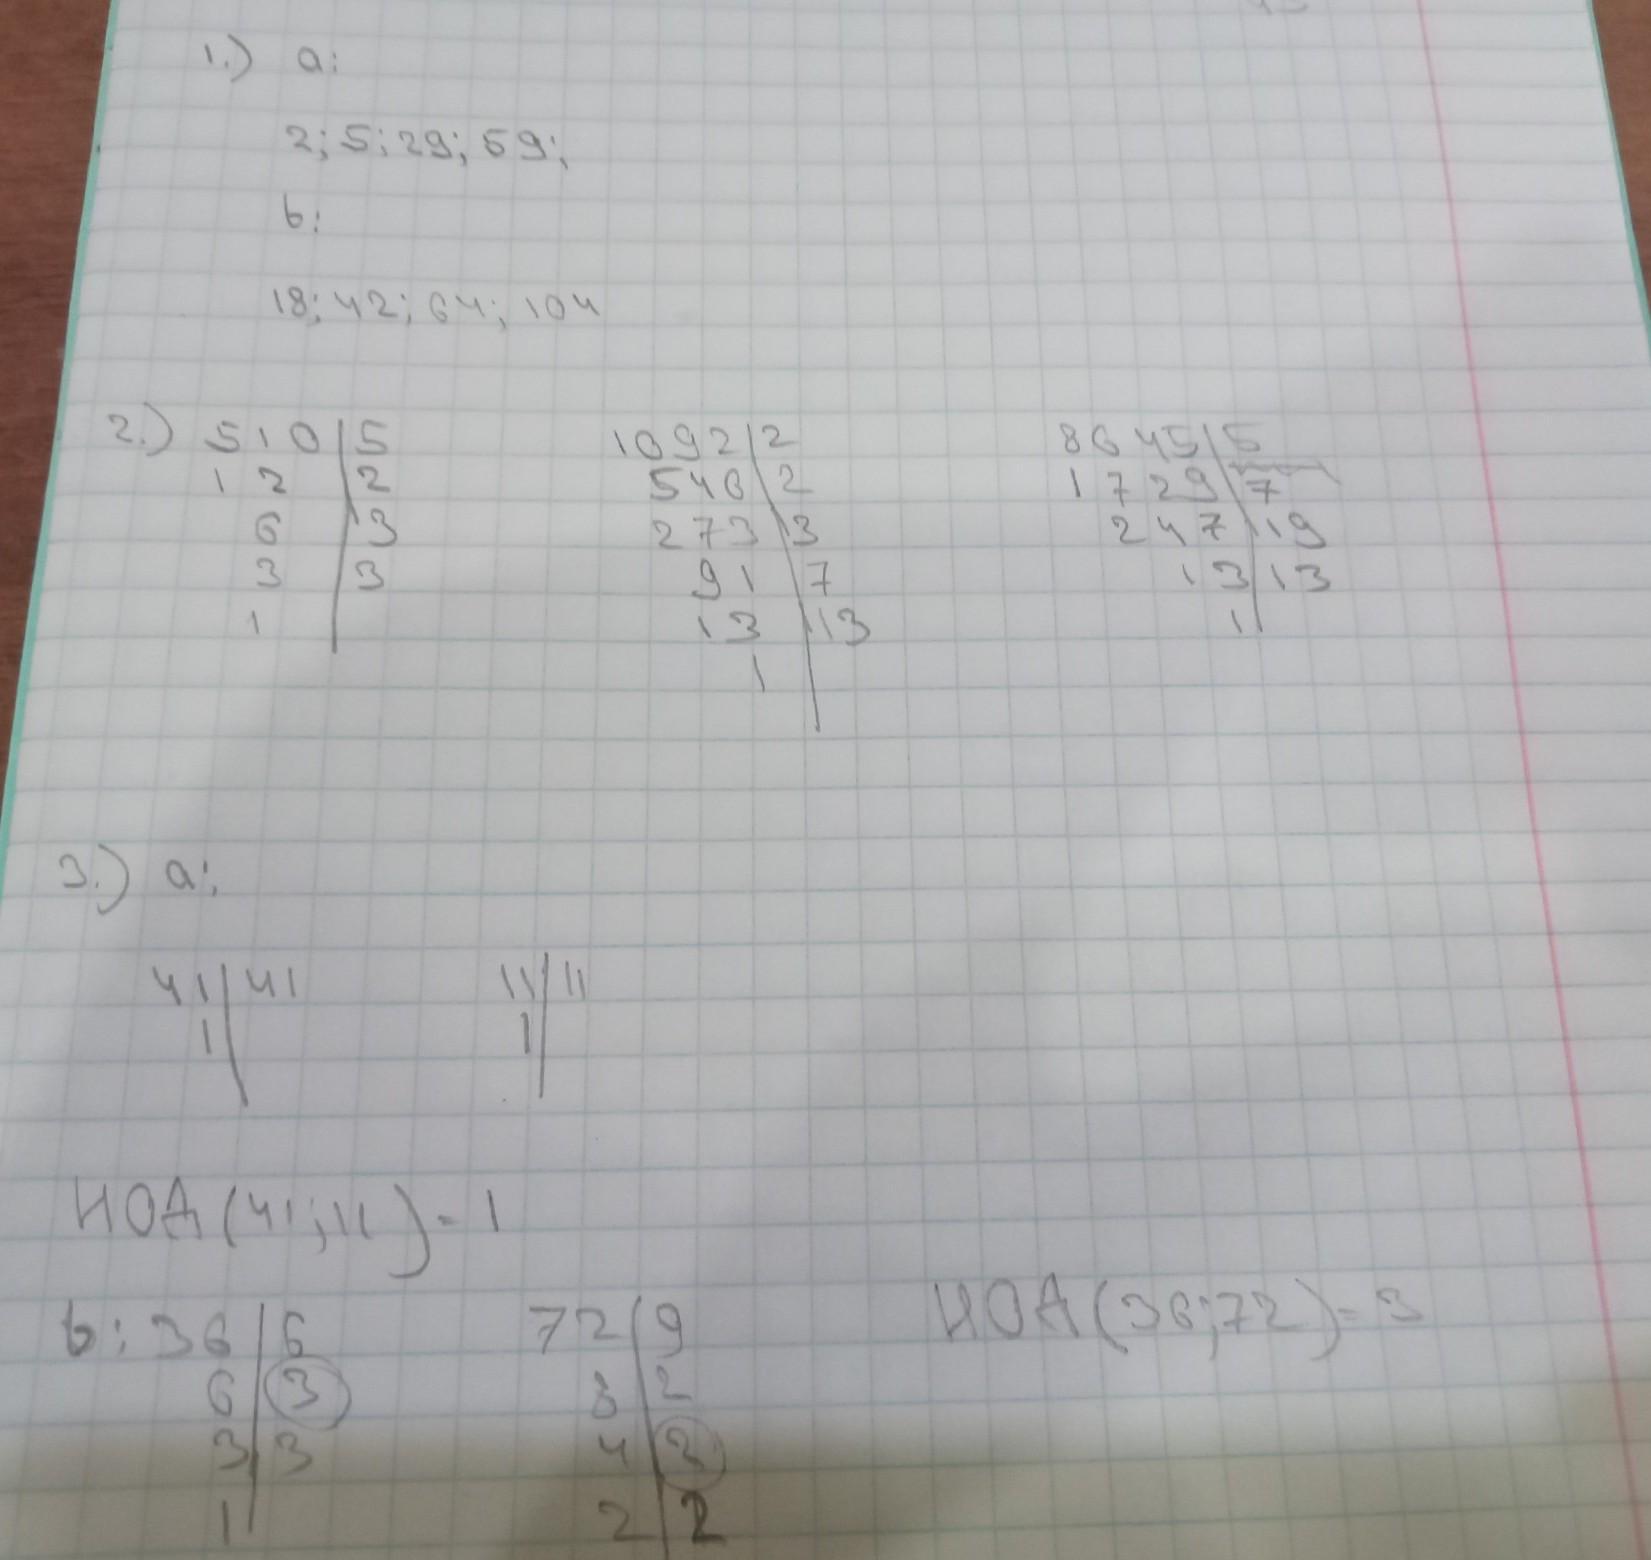 1.) a:
2; 5; 29; 59;
b:
18; 42; 64; 104
2.) 510 | 5 1092 | 2 8645 | 5
12 | 2 546 | 2 1729 | 7
6 | 3 273 | 3 247 | 19
3 | 3 91 | 7 13 | 13
1 13 | 13 1
1
3.) a:
41 | 41 11 | 11
1 1
НОД (41; 11) = 1
b: 36 | 6 72 | 9 НОД (36; 72) = 3
6 | 3 8 | 2
3 | 3 4 | 2
1 2 | 2